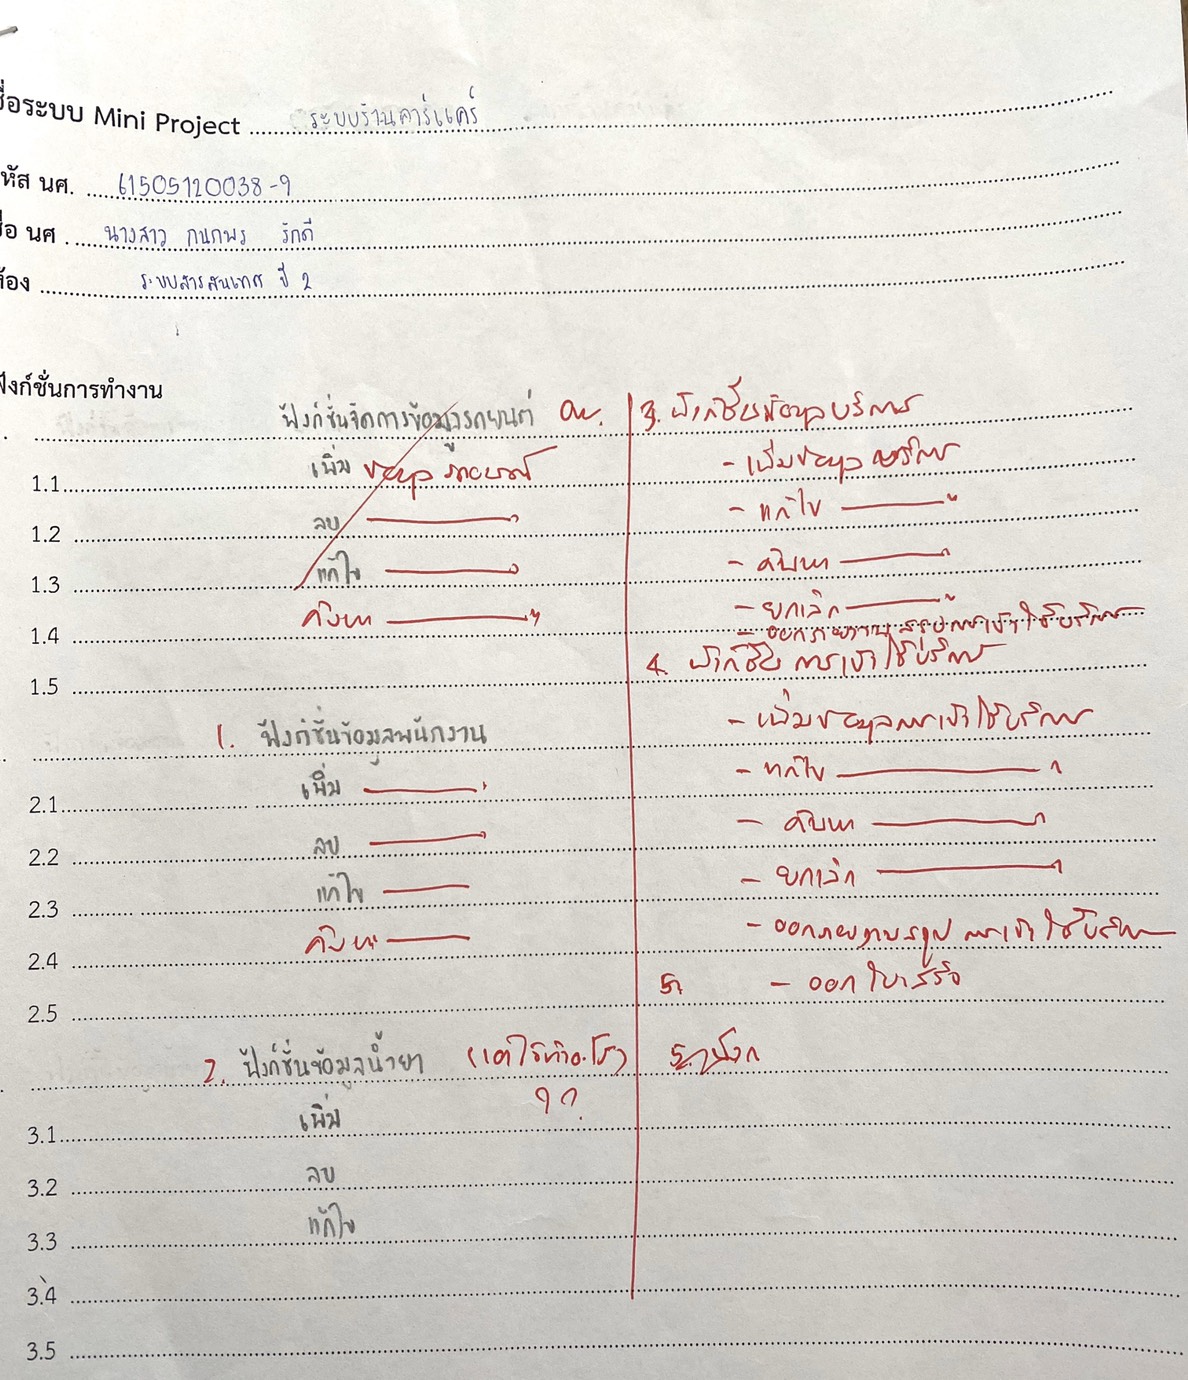 ชื่อระบบ Mini Project ระบบร้านคาร์แคร์
รหัส นศ. 61505120038-9
ชื่อ นศ. นางสาว กนกพร รักดี
ห้อง ระบบสารสนเทศ ปี 2
ฟังก์ชั่นการทำงาน
ฟังก์ชั่นจัดการข้อมูลรถยนต์
1.1 เพิ่ม ข้อมูลรถยนต์
1.2 ลบ "
1.3 แก้ไข "
1.4 ค้นหา "
1.5
1. ฟังก์ชั่นข้อมูลพนักงาน
2.1 เพิ่ม
2.2 ลบ
2.3 แก้ไข
2.4 ค้นหา
2.5
2. ฟังก์ชั่นข้อมูลน้ำยา
3.1 เพิ่ม
3.2 ลบ
3.3 แก้ไข
3.4
3.5
3. ฟังก์ชั่นข้อมูลบริการ
- เพิ่มข้อมูลบริการ
- แก้ไข "
- ค้นหา "
- ยกเลิก "
- ออกรายงานสรุปการเข้าใช้บริการ
4. ฟังก์ชั่นการเข้าใช้บริการ
- เพิ่มข้อมูลการเข้าใช้บริการ
- แก้ไข "
- ค้นหา "
- ยกเลิก "
- ออกรายงานสรุปการเข้าใช้บริการ
5. - ออกใบเสร็จ